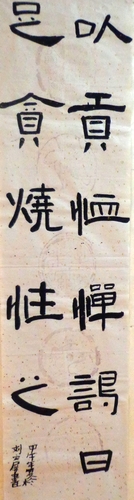 以貢恤憚謁曰
足貪燒性之
甲午年夏於
書